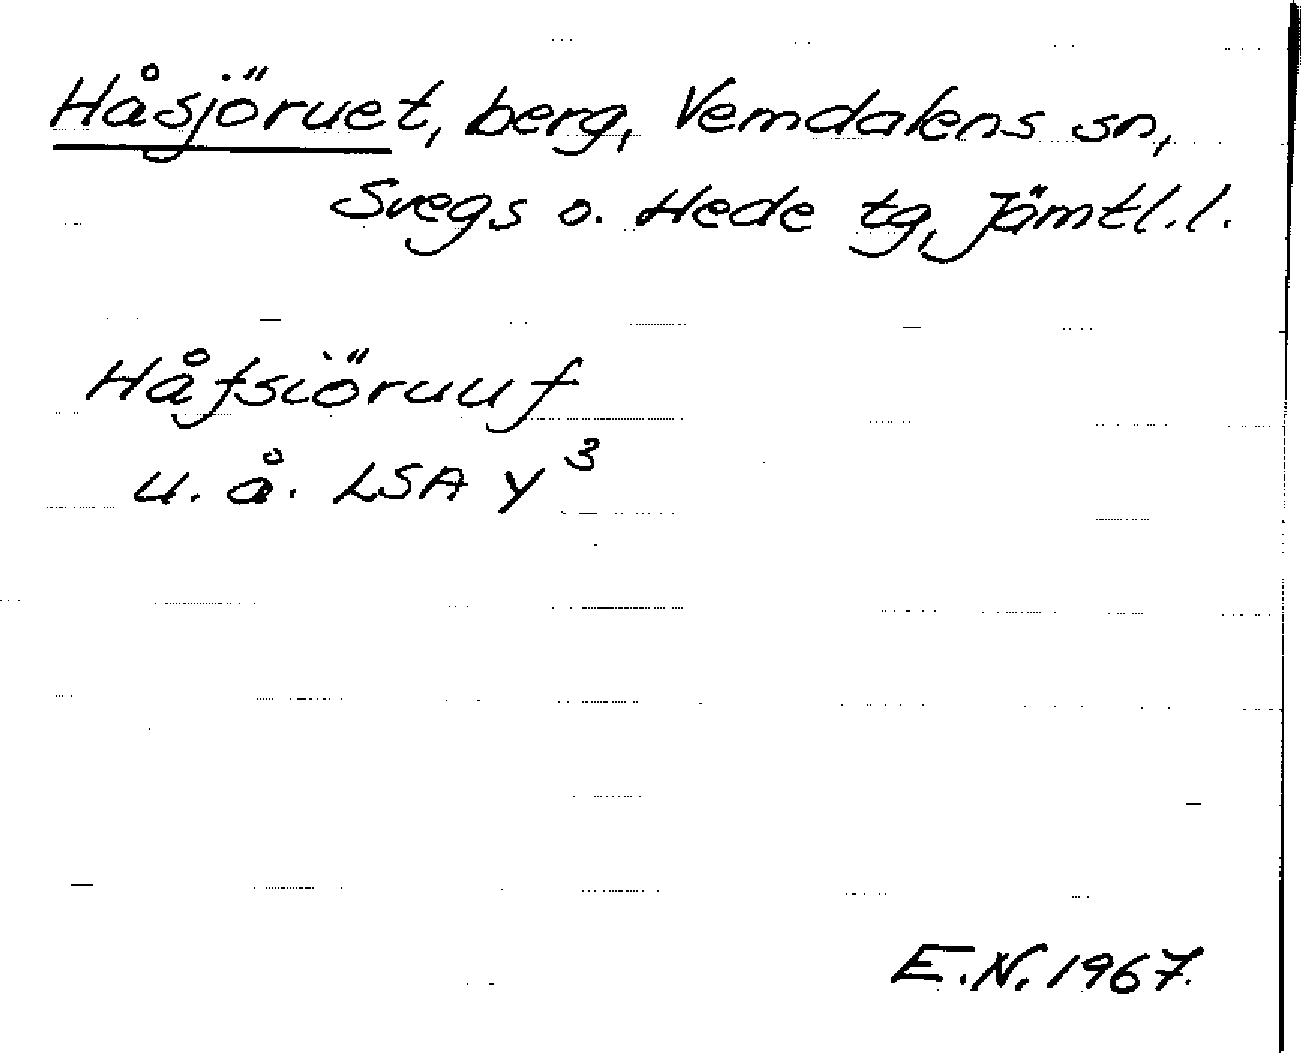 Håsjöruet, berg, Vemdalens sn,
Svegs o. Hede tg, Jämtl. l.
Håfsiöruuf
u. å. LSA Y 3
E.N. 1967.